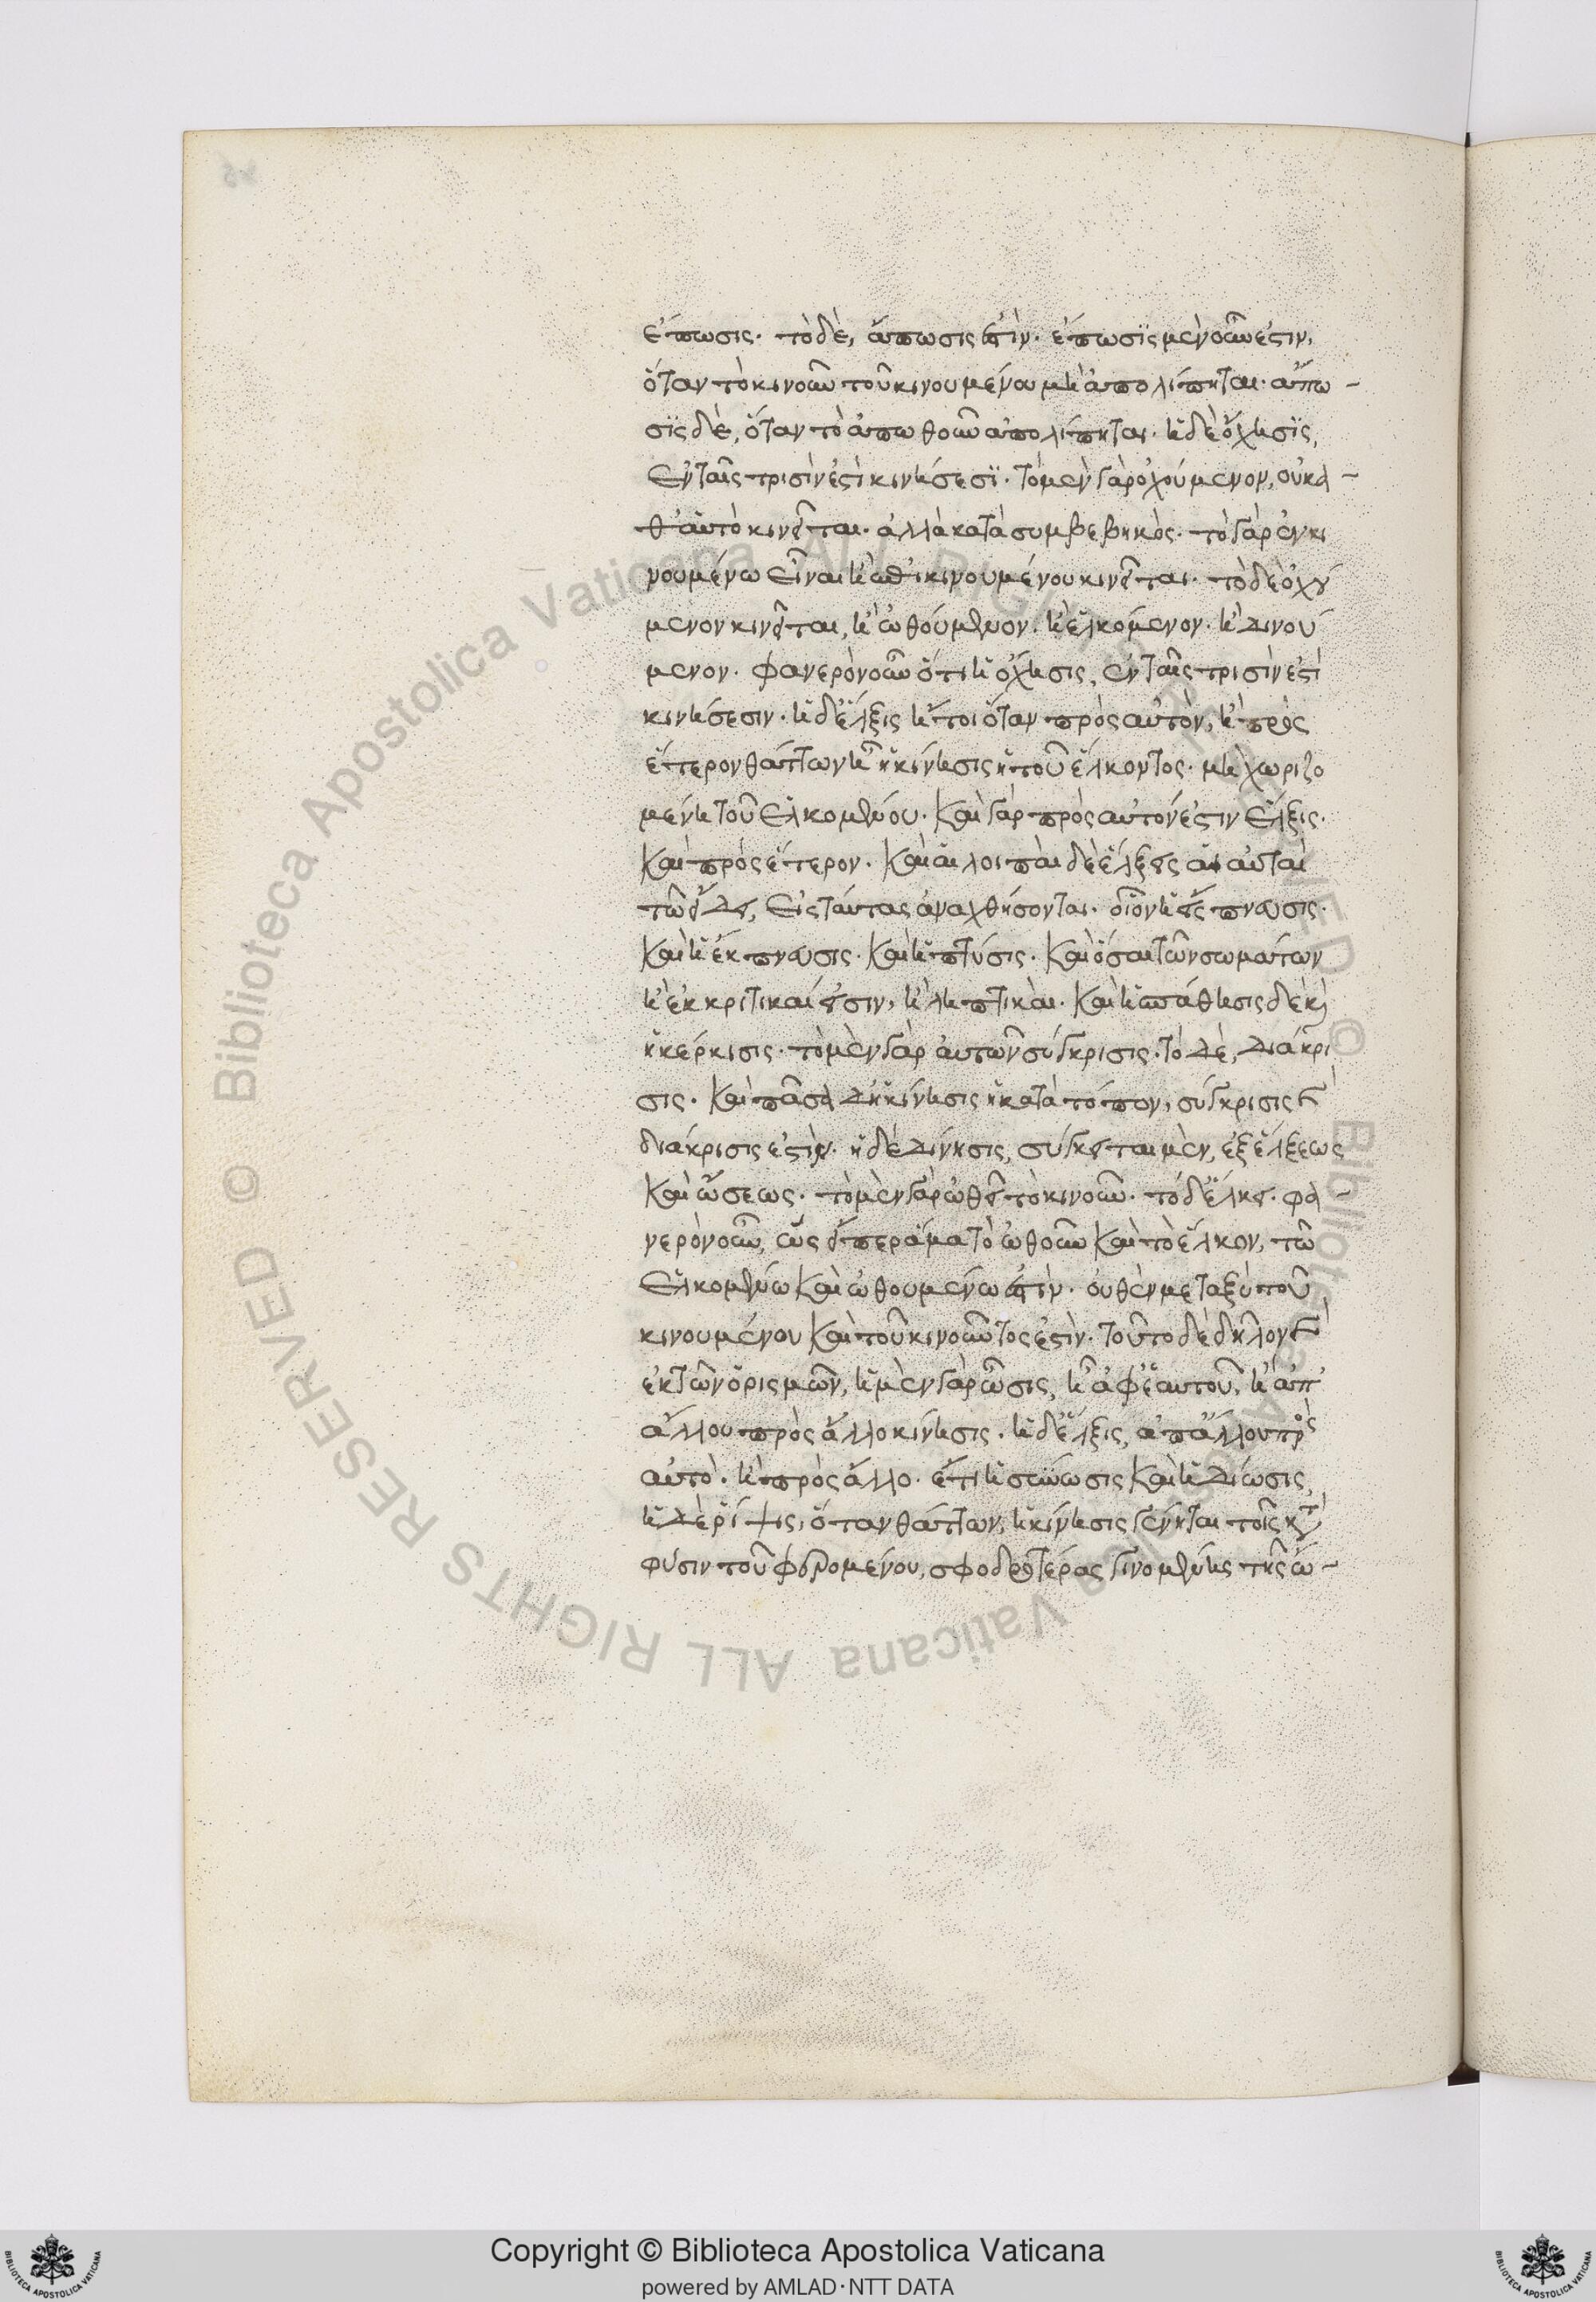 ἔπωσις. τὸ δὲ, ἄπωσις ἐστὶν. ἔπωσϊς μὲν οὖν ἐστιν,
ὅταν τὸ κινοῦν τοῦ κινουμένου μὴ ἀπολίπηται. ἄπω-
σϊς δὲ, ὅταν τὸ ἀπωθοῦν ἀπολίπηται. ἡ δὲ ὄχησϊς,
ἐν ταῖς τρισὶν ἐστὶ κινήσεσϊ. τὸ μὲν γὰρ ὀχούμενον, οὐ κα-
θ' αὑτὸ κινεῖται. ἀλλὰ κατὰ συμβεβηκὸς. τὸ γὰρ ἐν κι
νουμένω εἶναι ἢ ἐπὶ κινουμένου κινεῖται. τὸ δὲ ὀχού
μενον κινεῖται, ἢ ὠθούμενον. ἢ ἑλκόμενον. ἢ δινού
μενον. φανερὸν οὖν ὅτι ἡ ὄχησις, ἐν ταῖς τρισὶν ἐστὶ
κινήσεσιν. ἡ δ' ἕλξις ἤτοι ὅταν πρὸς αὐτὸν, ἢ πρὸς
ἕτερον θάττων ἢ ἡ κίνησις ἡ τοῦ ἕλκοντος. μὴ χωριζο
μένη τοῦ ἑλκομένου. καὶ γὰρ πρὸς αὐτόν ἐστιν ἕλξις.
καὶ πρὸς ἕτερον. καὶ αἱ λοιπαὶ δὲ ἕλξεις αἱ αὐταὶ
τῶ εἴδει, εἰς ταύτας ἀναχθήσονται. οἷον ἡ εἴς πνευσις.
καὶ ἡ ἔκπνευσις. καὶ ἡ πτύσις. καὶ ὅσαι τῶν σωμάτων
ἢ ἐκκριτικαί εἰσιν, ἢ ληπτικαὶ. καὶ ἡ σπάθησις δὲ καὶ
ἡ κέρκισις. τὸ μὲν γὰρ αὐτῶν σύγκρισις. τὸ δὲ, διάκρι
σις. καὶ πᾶσα δὴ κίνησις ἡ κατὰ τόπον, σύγκρισις καὶ
διάκρισις ἐστὶν. ἡ δὲ δίνησις, σύγκειται μὲν, ἐξ ἕλξεως
καὶ ὤσεως. τὸ μὲν γὰρ ὠθεῖ τὸ κινοῦν. τὸ δ' ἕλκει. φα-
νερὸν οὖν, ὡς εἴπερ ἅμα τὸ ὠθοῦν καὶ τὸ ἕλκον, τῶ
ἑλκομένω καὶ ὠθουμένω ἐστὶν. οὐθὲν μεταξὺ τοῦ
κινουμένου καὶ τοῦ κινοῦντος ἐστὶν. τοῦτο δὲ δῆλον καὶ
ἐκ τῶν ὁρισμῶν, ἡ μὲν γὰρ ὦσις, ἢ ἀφ' ἑαυτοῦ, ἢ ἀπ'
ἄλλου πρὸς ἄλλο κίνησις. ἡ δ' ἕλξις, ἀπ' ἄλλου πρὸς
αὐτὸ. ἢ πρὸς ἄλλο. ἔτι ἡ σύνωσις καὶ ἡ δίωσις,
ἡ δὲ ῥίψις, ὅταν θάττων, ἡ κίνησις γένηται τοῖς κατὰ
φύσιν τοῦ φερομένου, σφοδροτέρας γινομένης τῆς ὤ-